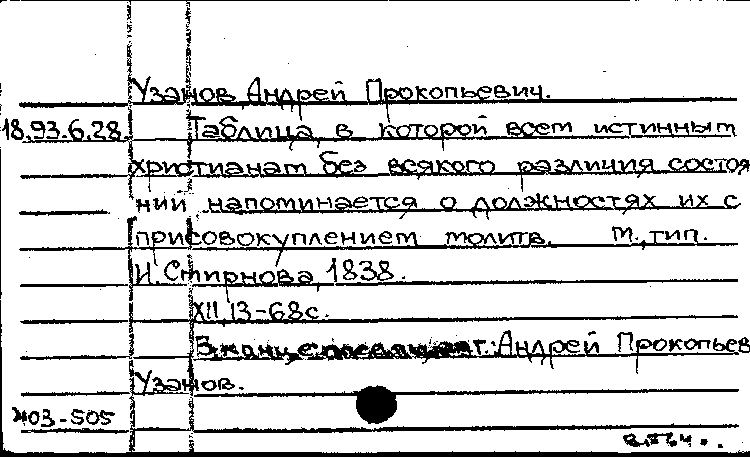 Узанов, Андрей Прокопьевич.
18.93.6.28. Таблица, в которой всем истинным
христианам без всякого различия состоя
ний напоминается о должностях их с
присовокуплением молитв. М., тип.
И. Смирнова, 1838.
XII, 13-68 с.
В конце Андрей Прокопьев
Узанов.
403-505